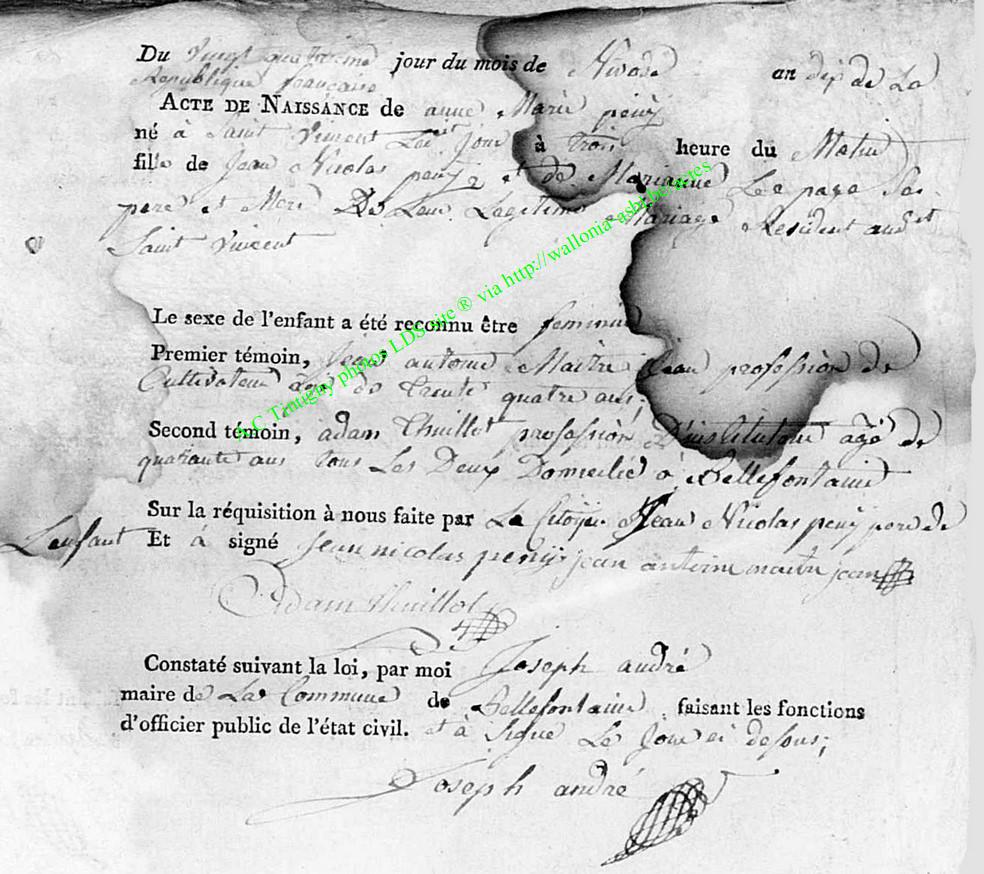 Du vingt quatrieme jour du mois de Nivose an dix de La
Republique francaise
ACTE DE NAISSANCE de anne Marie peny
né à Saint Vincent Led. Jour à trois heure du Matin
fille de Jean Nicolas peny et de Marianne Le page Ses
pere et Mere De Leur Legitime Mariage Resident aud.it
Saint Vincent
Le sexe de l'enfant a été reconnu être feminin
Premier témoin, Jean antoine Maitre Jean profession de
Cultivateur age de trente quatre ans;
Second témoin, adam Thuillot profession D'instituteur agé de
quarante ans tous Les Deux Domicilié a Bellefontaine
Sur la réquisition à nous faite par Le Citoyen Jean Nicolas peny pere de
L'enfant Et à signé Jean nicolas peny jean antoine maitre jean
Adam Thuillot
Constaté suivant la loi, par moi Joseph andré
maire de La Commune de Bellefontaine, faisant les fonctions
d'officier public de l'état civil. et à Signe Le Jour ci desous;
Joseph andré
A-C Tintigny photos LDS site ® via http://wallonia-asbl.be/actes